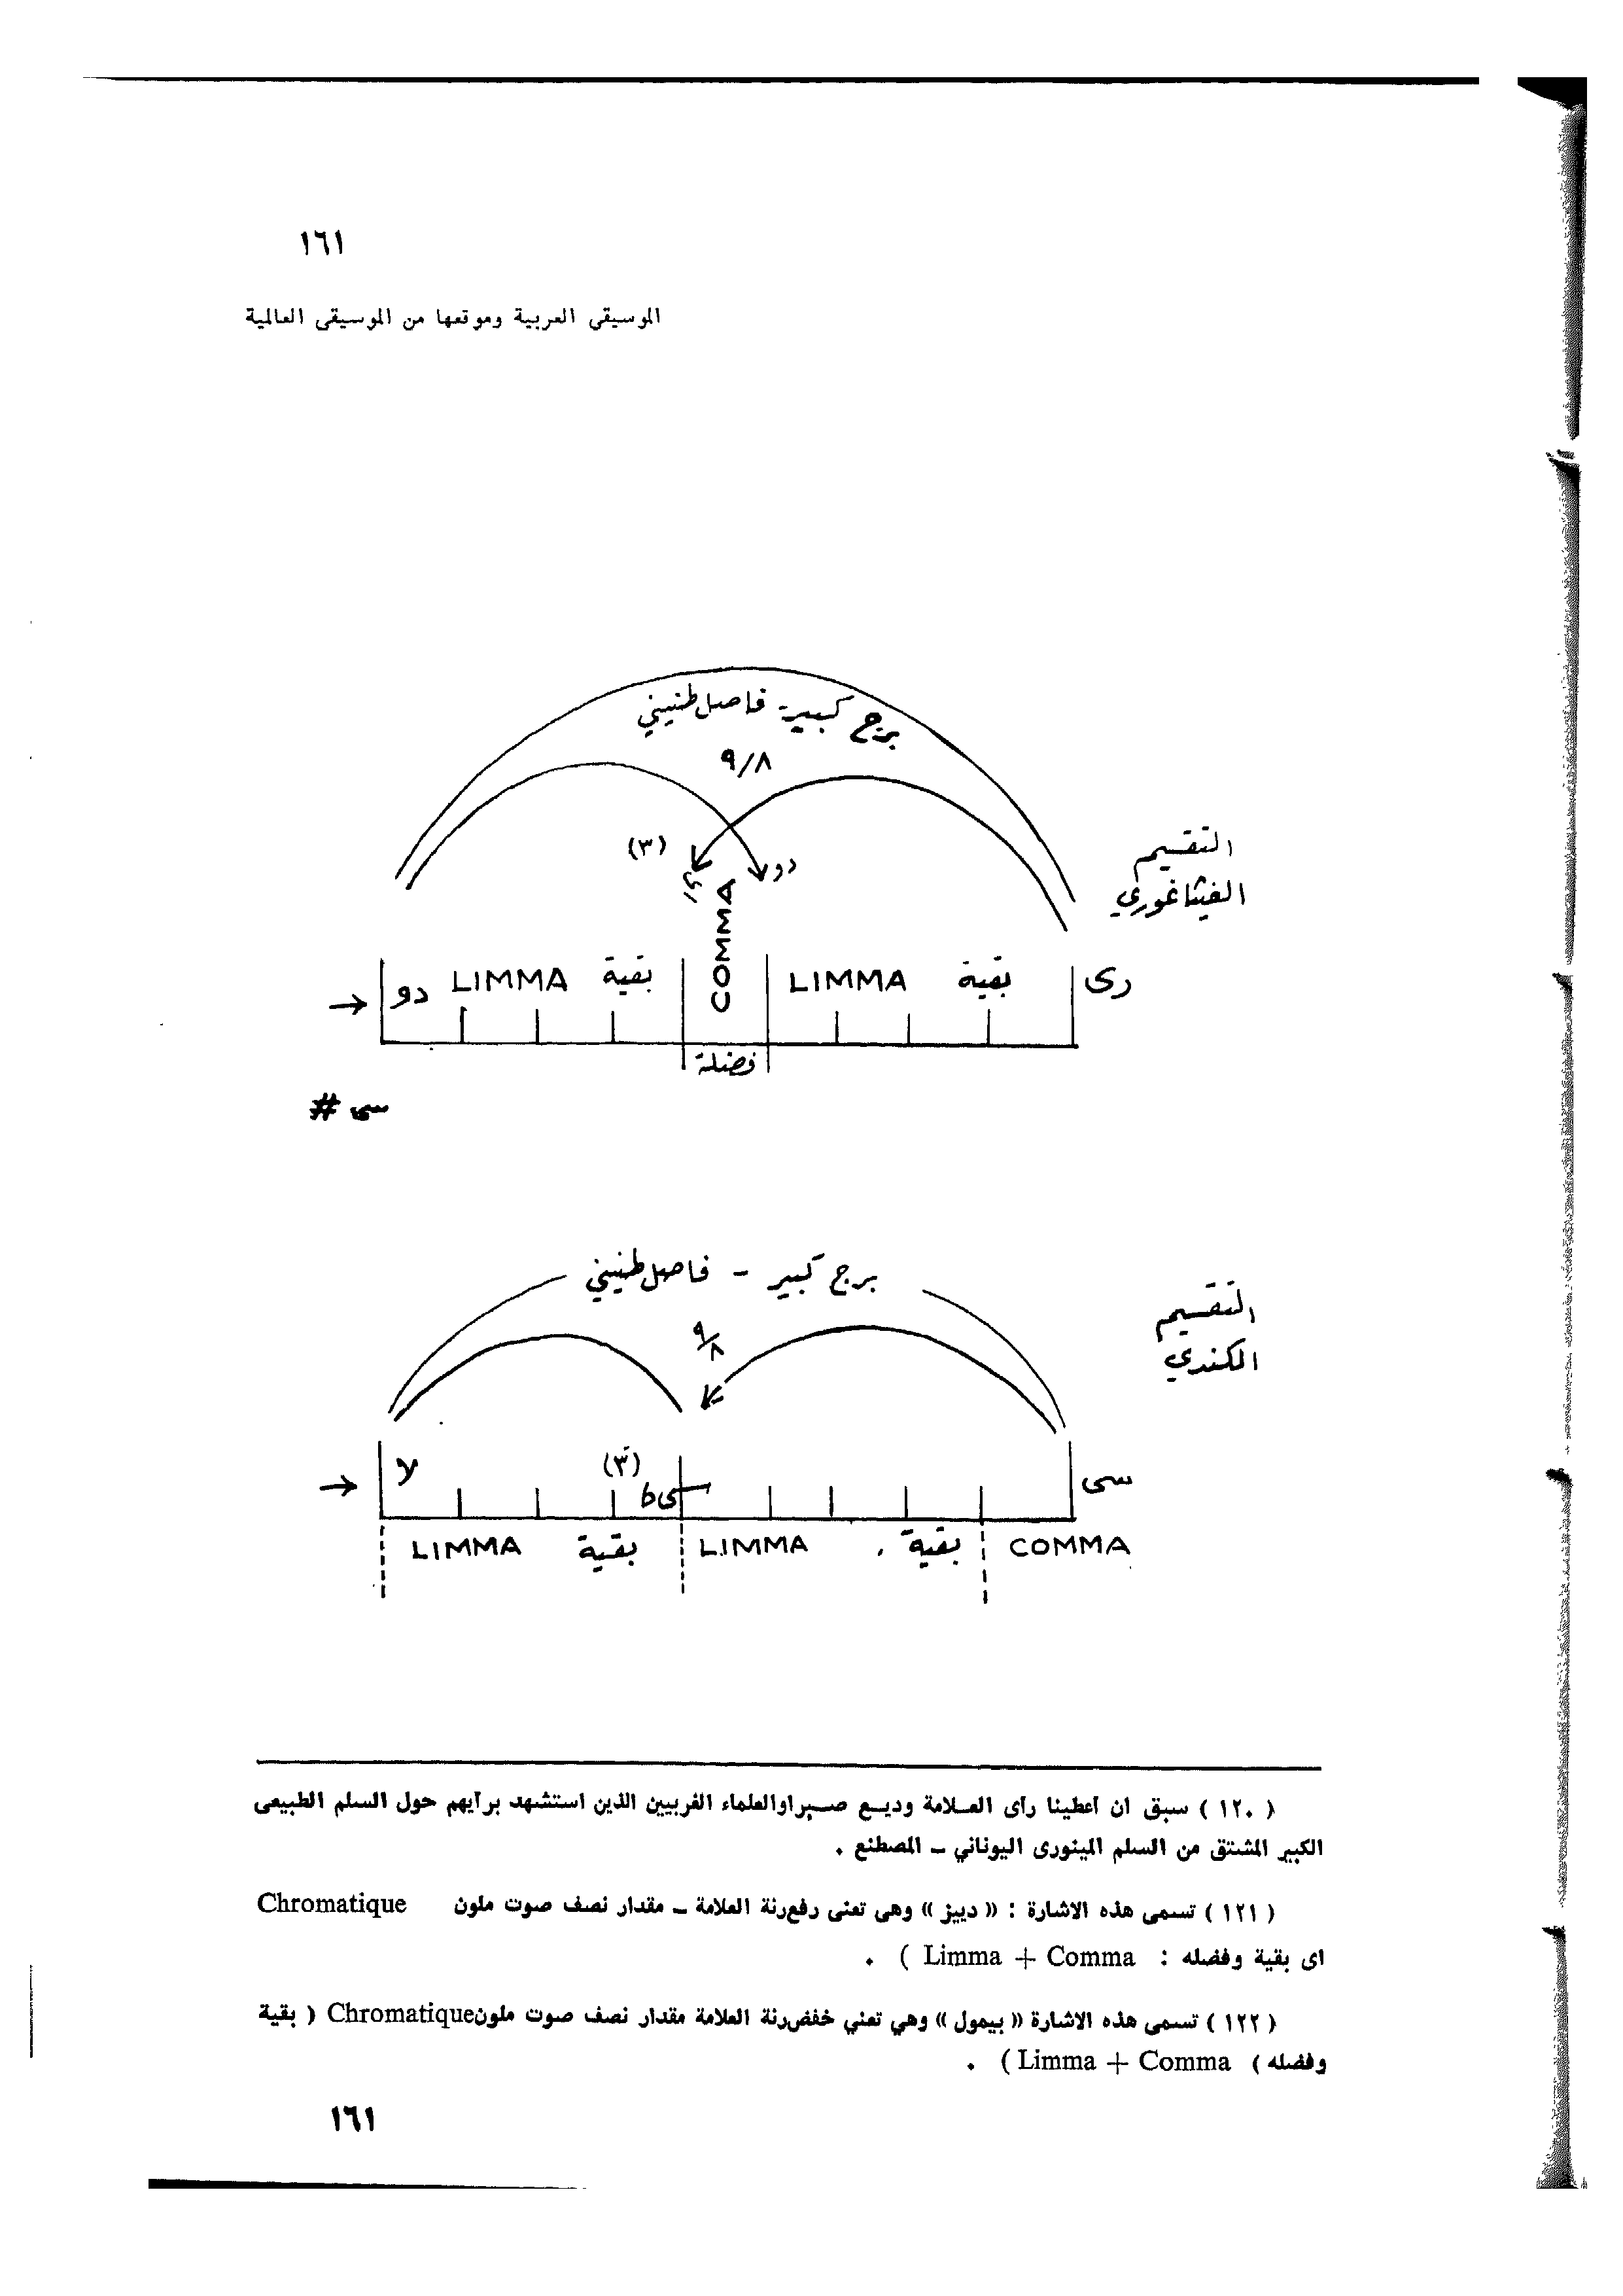 ١٦١
الموسيقى العربية وموقعها من الموسيقى العالمية
برج كبير - فاصل طنيني
٩/٨
التقسيم
الفيثاغوري
(٣)
دو
رى
COMMA
دو LIMMA بقية
LIMMA بقية رى
فضلة
سى #
برج كبير - فاصل طنيني
٩/٨
التقسيم
الكندي
لا (٣) سىb سى
LIMMA بقية LIMMA بقية COMMA
( ١٢٠ ) سبق ان اعطينا رأى العـلامة وديـع صـبرا والعلماء الغربيين الذين استشهد برأيهم حول السلم الطبيعى
الكبير المشتق من السلم المينورى اليوناني ــ المصطنع .
( ١٢١ ) تسمى هذه الاشارة : « دييز » وهى تعنى رفع رنة العلامة ــ مقدار نصف صوت ملون Chromatique
اى بقية وفضله : Limma + Comma ) .
( ١٢٢ ) تسمى هذه الاشارة « بيمول » وهي تعني خفض رنة العلامة مقدار نصف صوت ملون Chromatique ( بقية
وفضله ) Limma + Comma ) .
١٦١